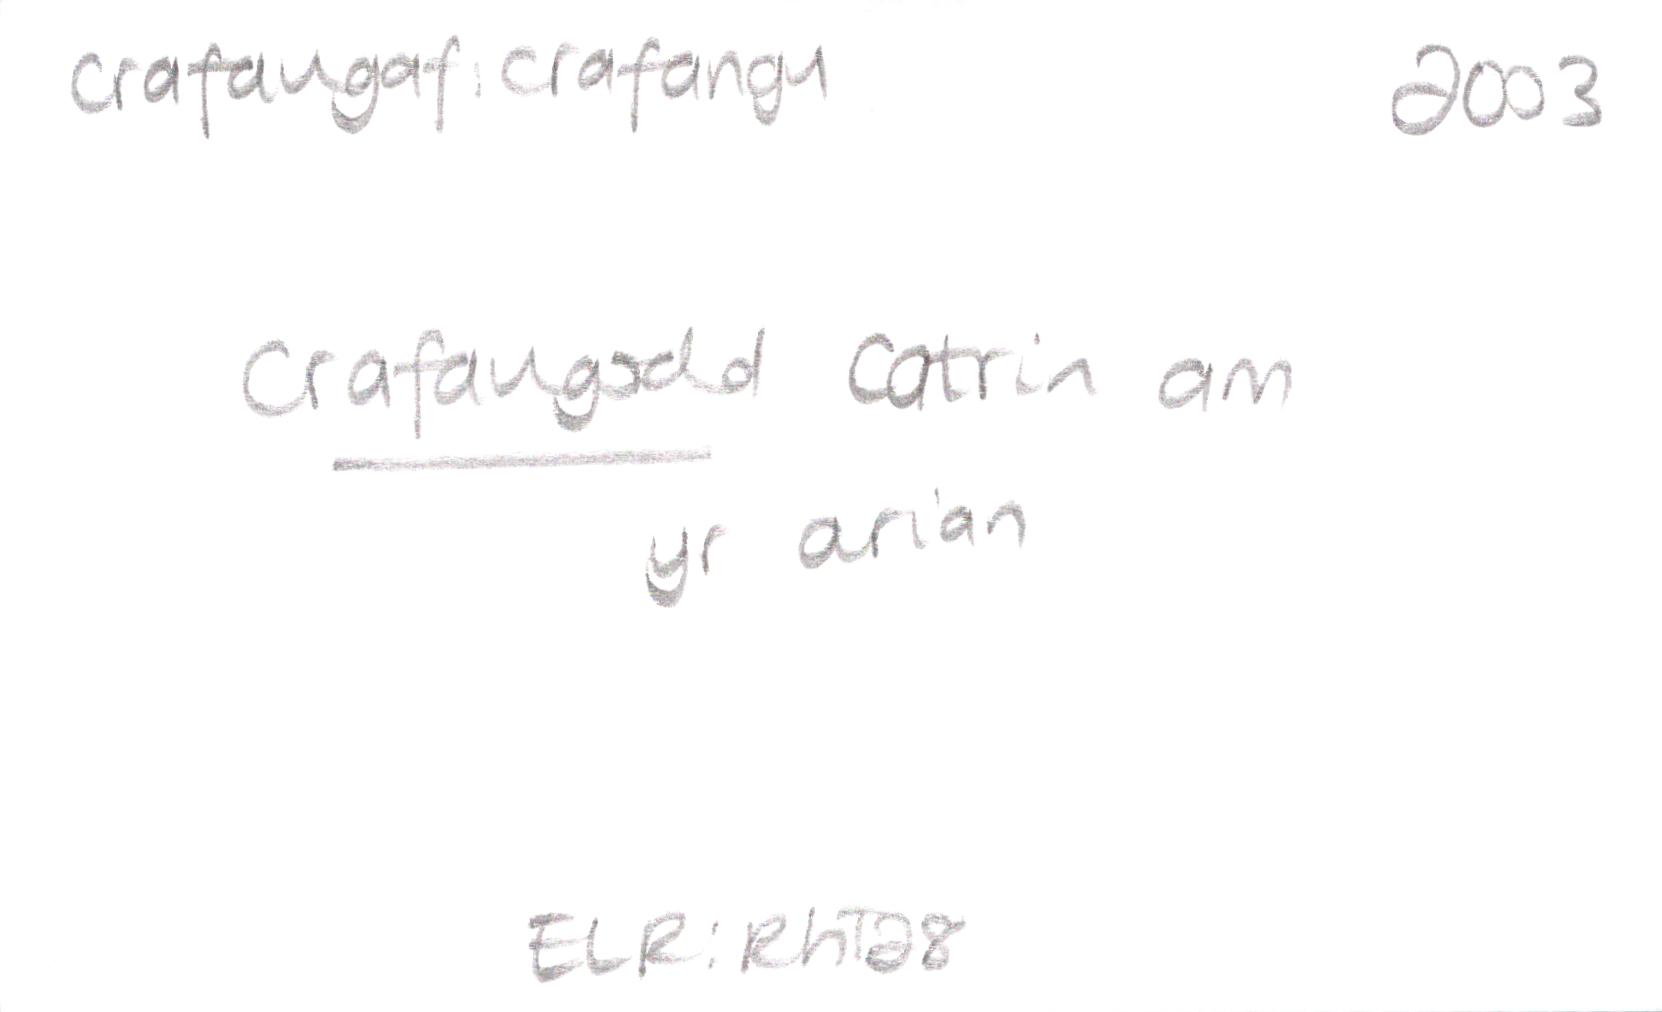 crafangaf: crafangu 2003
Crafangodd Catrin am
yr arian
ELR: RhT28